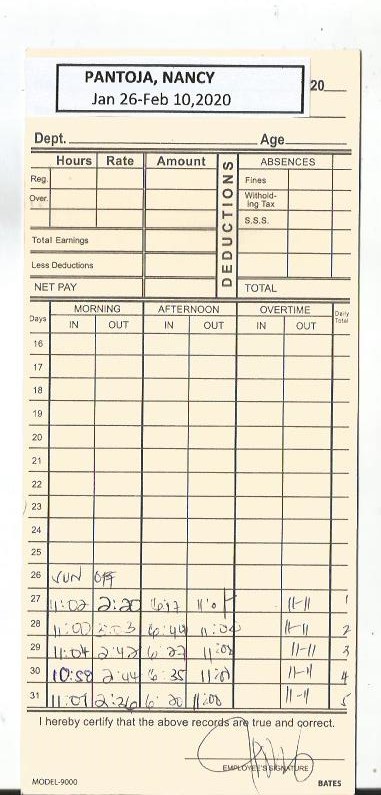 PANTOJA, NANCY
Jan 26-Feb 10,2020
20
Dept. Age
Hours Rate Amount DEDUCTIONS ABSENCES
Reg. Fines
Over. Withold-
ing Tax
S.S.S.
Total Earnings
Less Deductions
NET PAY TOTAL
Days MORNING AFTERNOON OVERTIME Daily Total
IN OUT IN OUT IN OUT
16
17
18
19
20
21
22
23
24
25
26 SUN OFF
27 11:02 2:20 11-11 1
28 6:44 11-11 2
29 11:04 2:42 6:27 11:02 11-11 3
30 10:58 2:44 6:35 11:01 11-11 4
31 11:01 2:26 6:20 11:00 11-11 5
I hereby certify that the above records are true and correct.
EMPLOYEE'S SIGNATURE
MODEL-9000 BATES